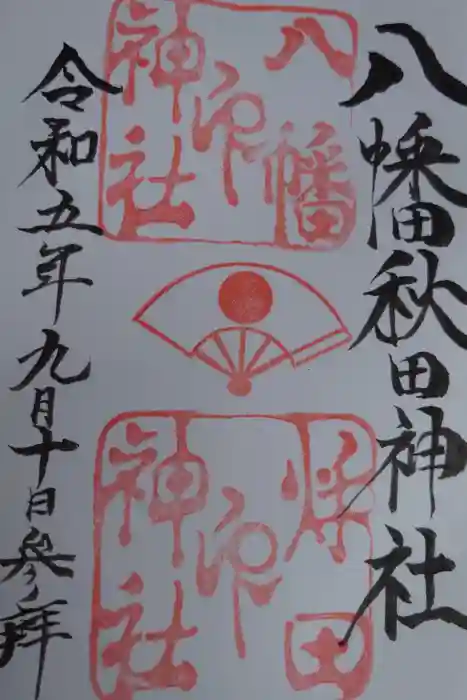 八幡秋田神社
八幡
神社
印
秋田
神社
印
令和五年九月十日参拜